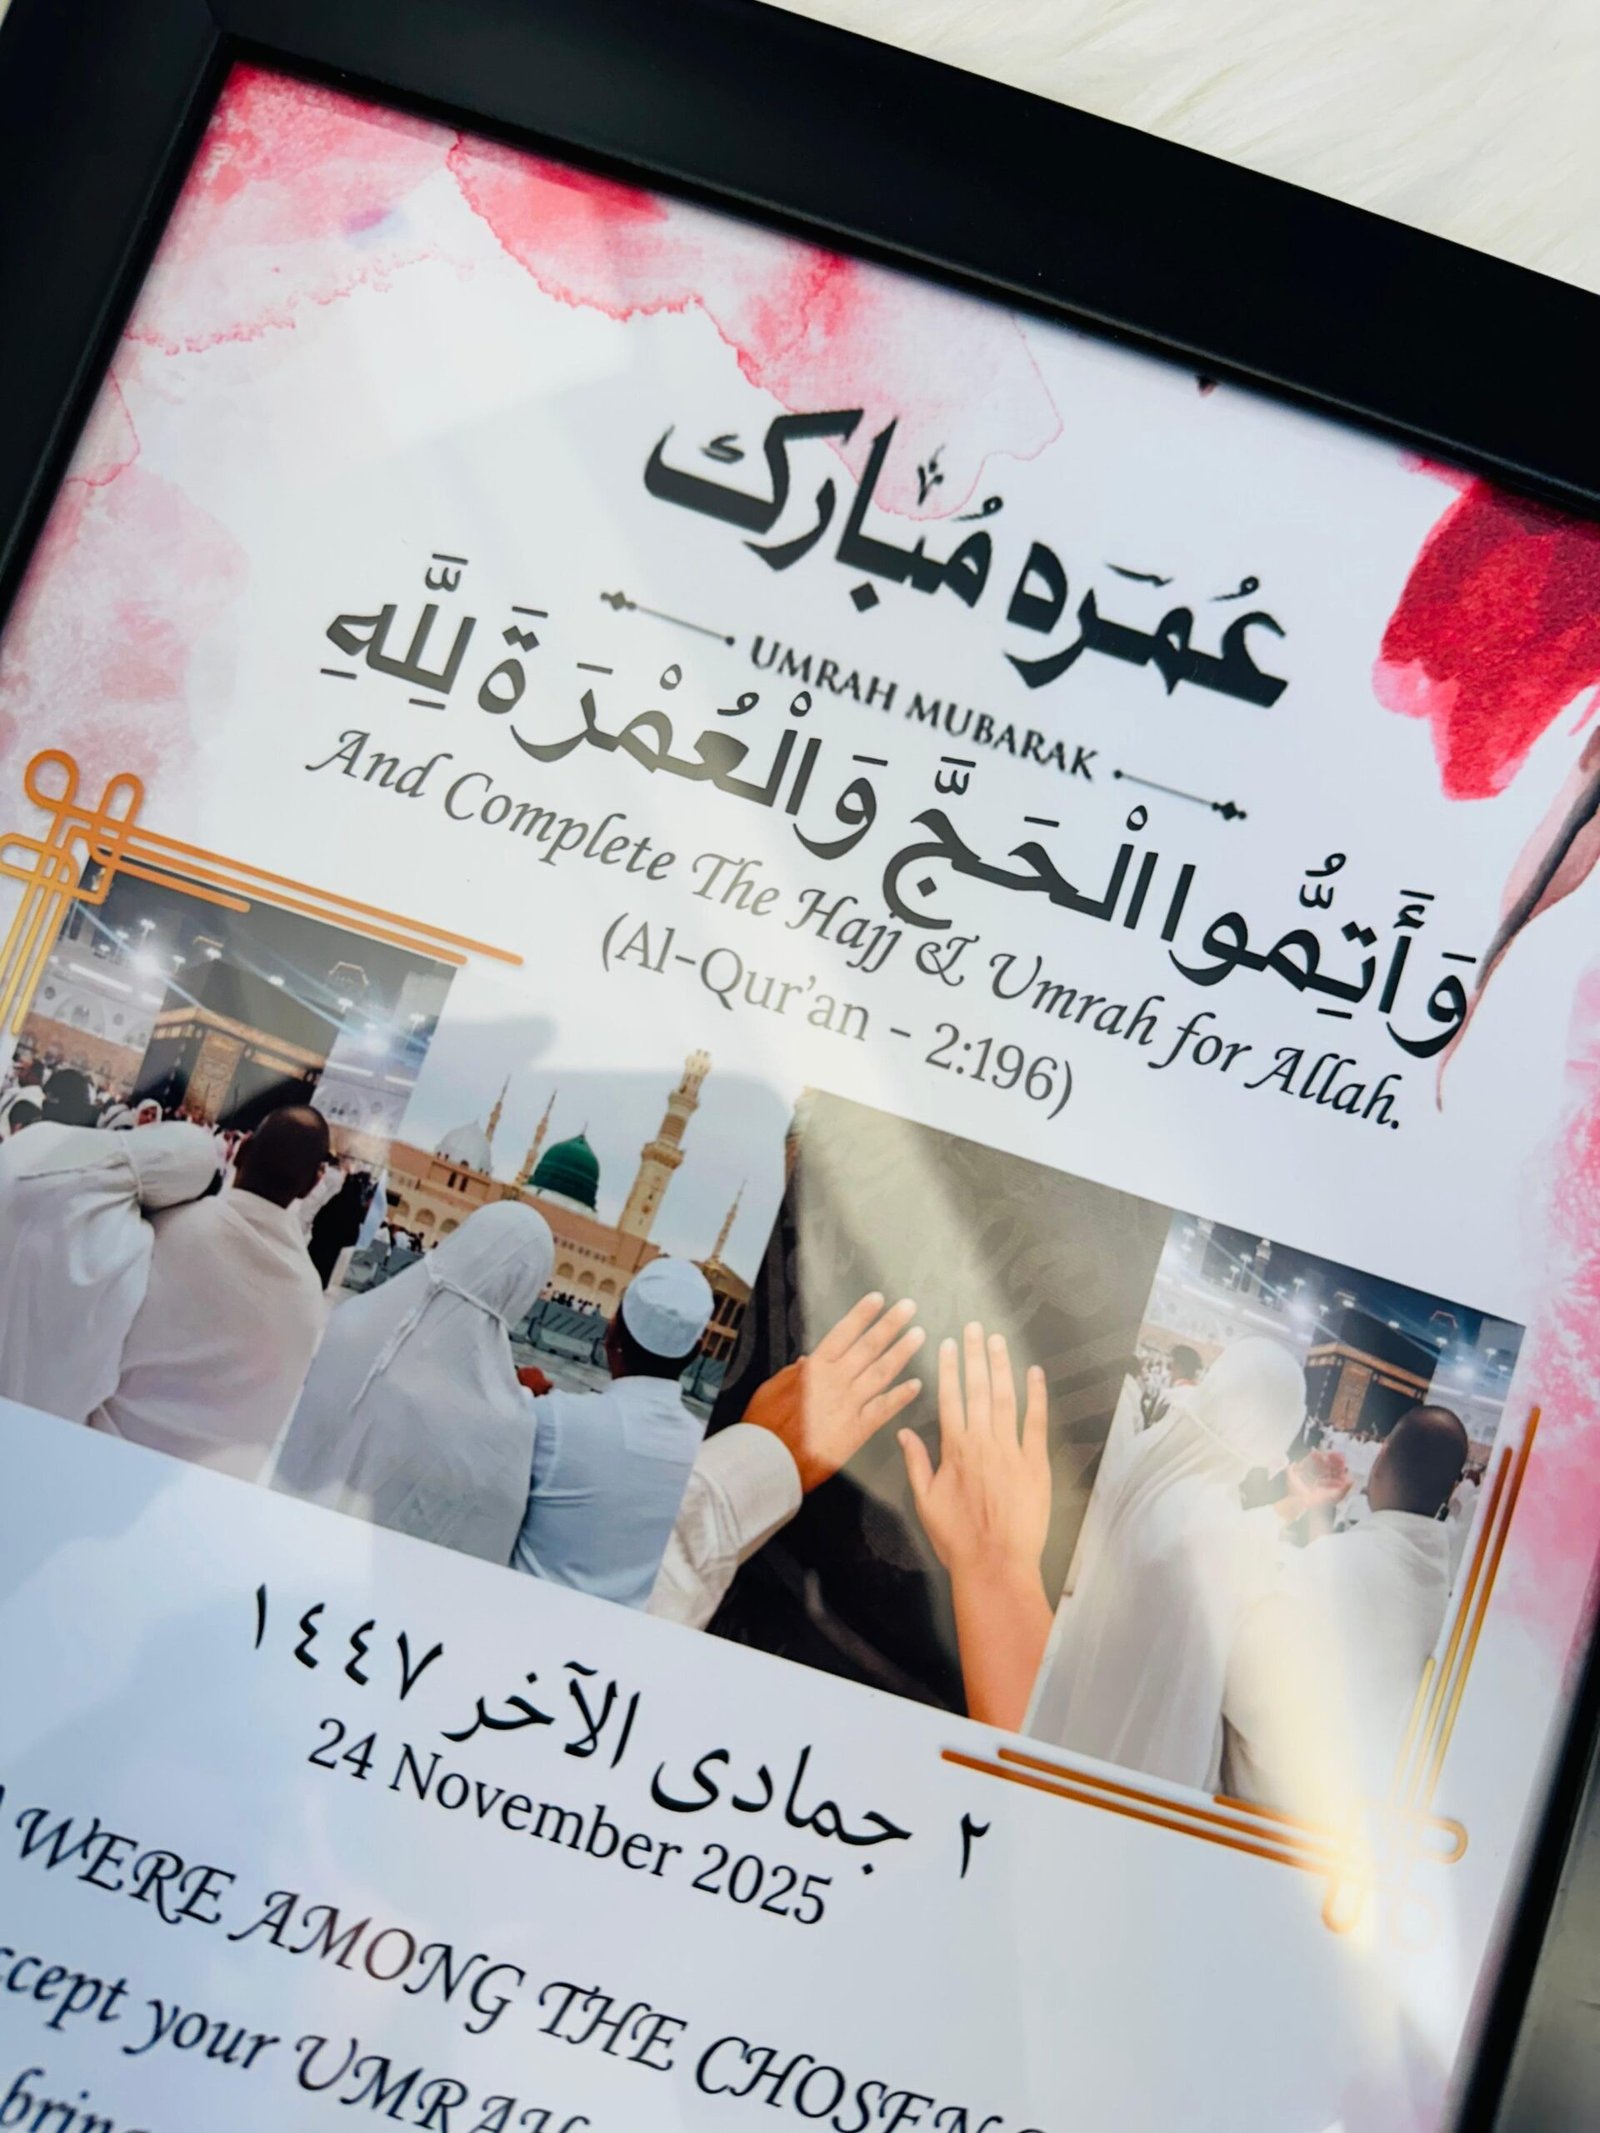 عُمَره مُبارك
UMRAH MUBARAK
وَأَتِمُّوا الْحَجَّ وَالْعُمْرَةَ لِلَّهِ
And Complete The Hajj & Umrah for Allah.
(Al-Qur'an - 2:196)
٢ جمادى الآخر ١٤٤٧
24 November 2025
WERE AMONG THE CHOSEN
your UMRAH